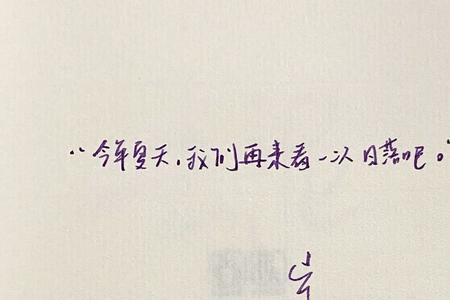 “今年夏天，我们再来看一次日落吧。”